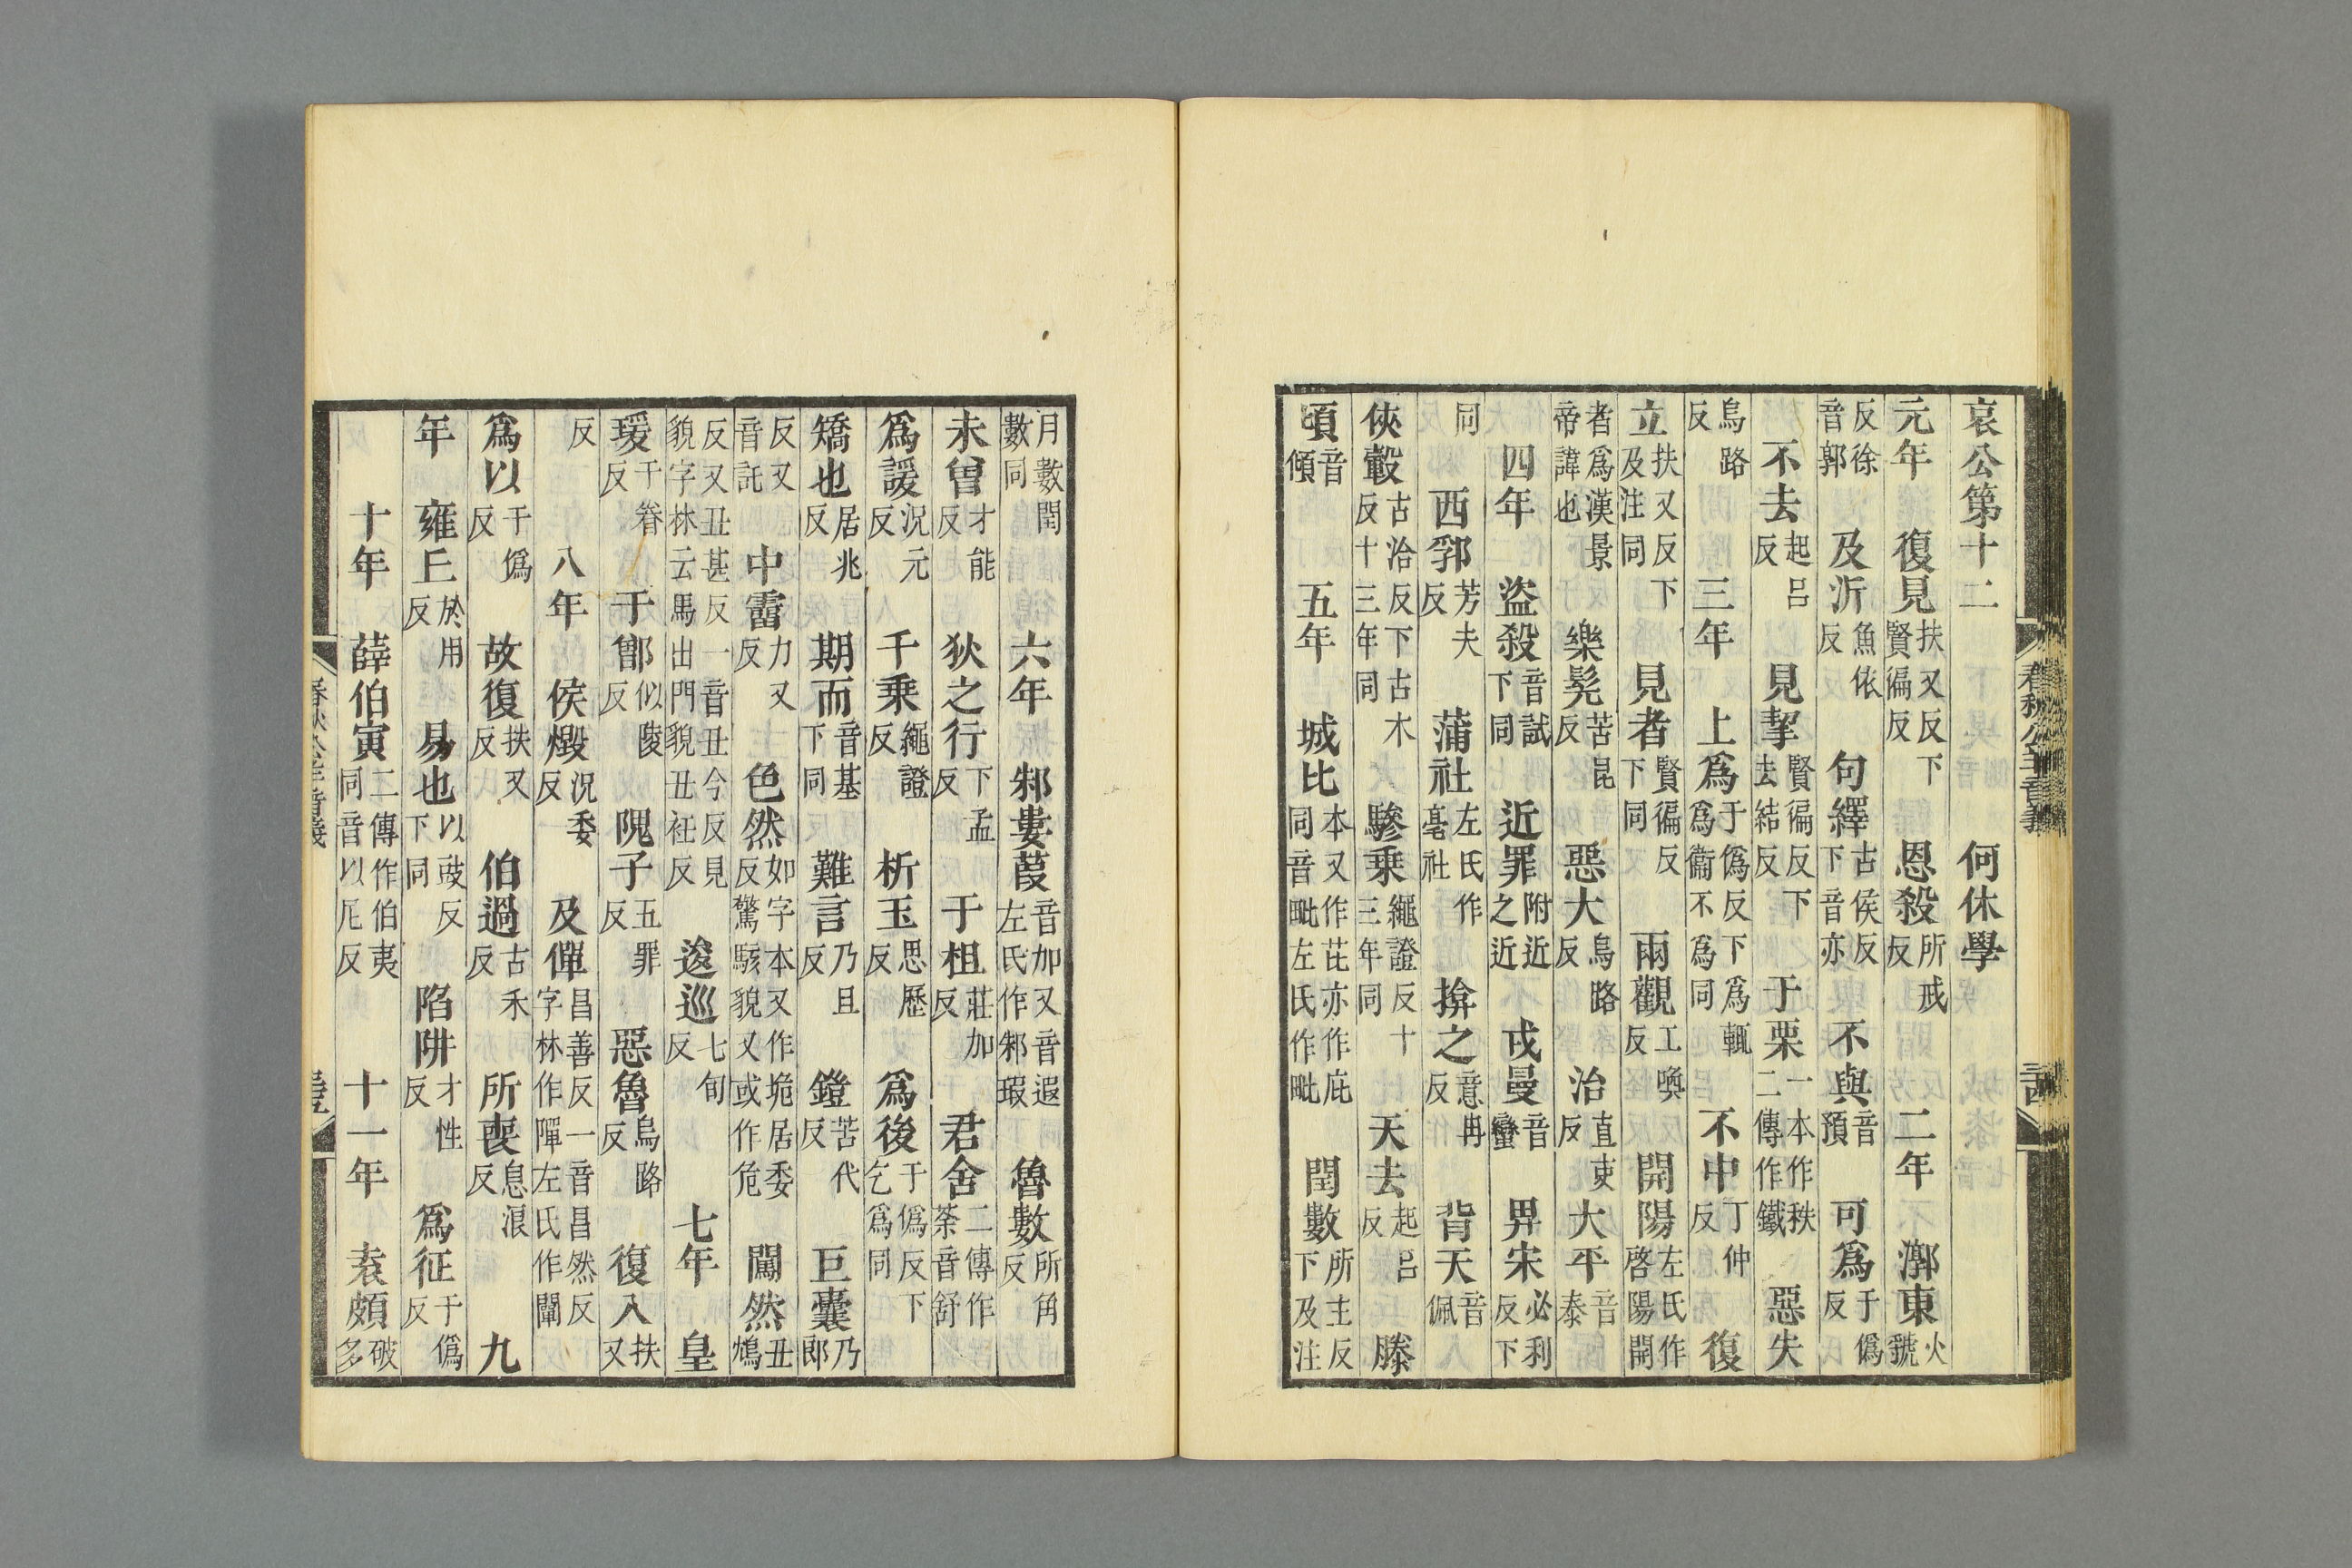 哀公第十二 何休學
元年 復見扶又反下賢徧反 恩殺所戒反 二年 漷東火虢
反徐音郭 及沂魚依反 句繹古侯反下音亦 不與音預 可爲于僞反
不去起呂反 見挈賢徧反下去結反 于栗一本作秩二傳作鐵 惡失
烏路反 三年 上爲于僞反下爲輒爲衞不爲同 不中丁仲反 復
立扶又反下及注同 見者賢徧反下同 兩觀工喚反 開陽左氏作啓陽開
者爲漢景帝諱也 樂髡苦昆反 惡大烏路反 治直吏反 大平音泰
四年 盜殺音試下同 近罪附近之近 戎曼音蠻 畀宋必利反下
同 西郛芳夫反 蒲社左氏作亳社 揜之意冉反 背天音佩
俠轂古洽反下古木反十三年同 驂乘繩證反十三年同 天去起呂反 滕
頃音傾 五年 城比本又作芘亦作庇同音毗左氏作毗 閏數所主反下及注
月數閏數同 六年 邾婁葭音加又音遐左氏作邾瑕 魯數所角反
未曾才能反 狄之行下孟反 于柤莊加反 君舍二傳作荼音舒
爲諼況元反 千乘繩證反 析玉思歷反 爲後于僞反下乞爲同
矯也居兆反 期而音基下同 難言乃旦反 鎧苦代反 巨囊乃郎
反又音託 中霤力又反 色然如字本又作垝居委反驚駭貌又或作危 闖然丑鴆
反又丑甚反一音丑今反見貌字林云馬出門貌丑衽反 逡巡七旬反 七年 皇
瑗于眷反 于鄫似陵反 隗子五罪反 惡魯烏路反 復入扶又
反 八年 侯燬況委反 及僤昌善反一音昌然反字林作嘽左氏作闡
爲以于僞反 故復扶又反 伯過古禾反 所喪息浪反 九
年 雍丘於用反 易也以豉反下同 陷阱才性反 爲征于僞反
十年 薛伯寅二傳作伯夷同音以尼反 十一年 袁頗破多
春秋公羊音義